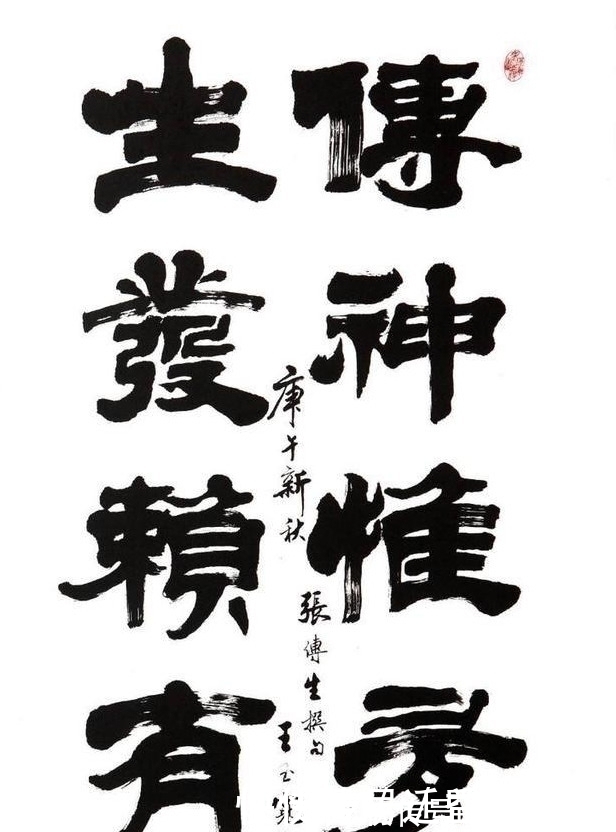 傳神惟
生發賴有
庚午新秋
張傳生撰句
王玉